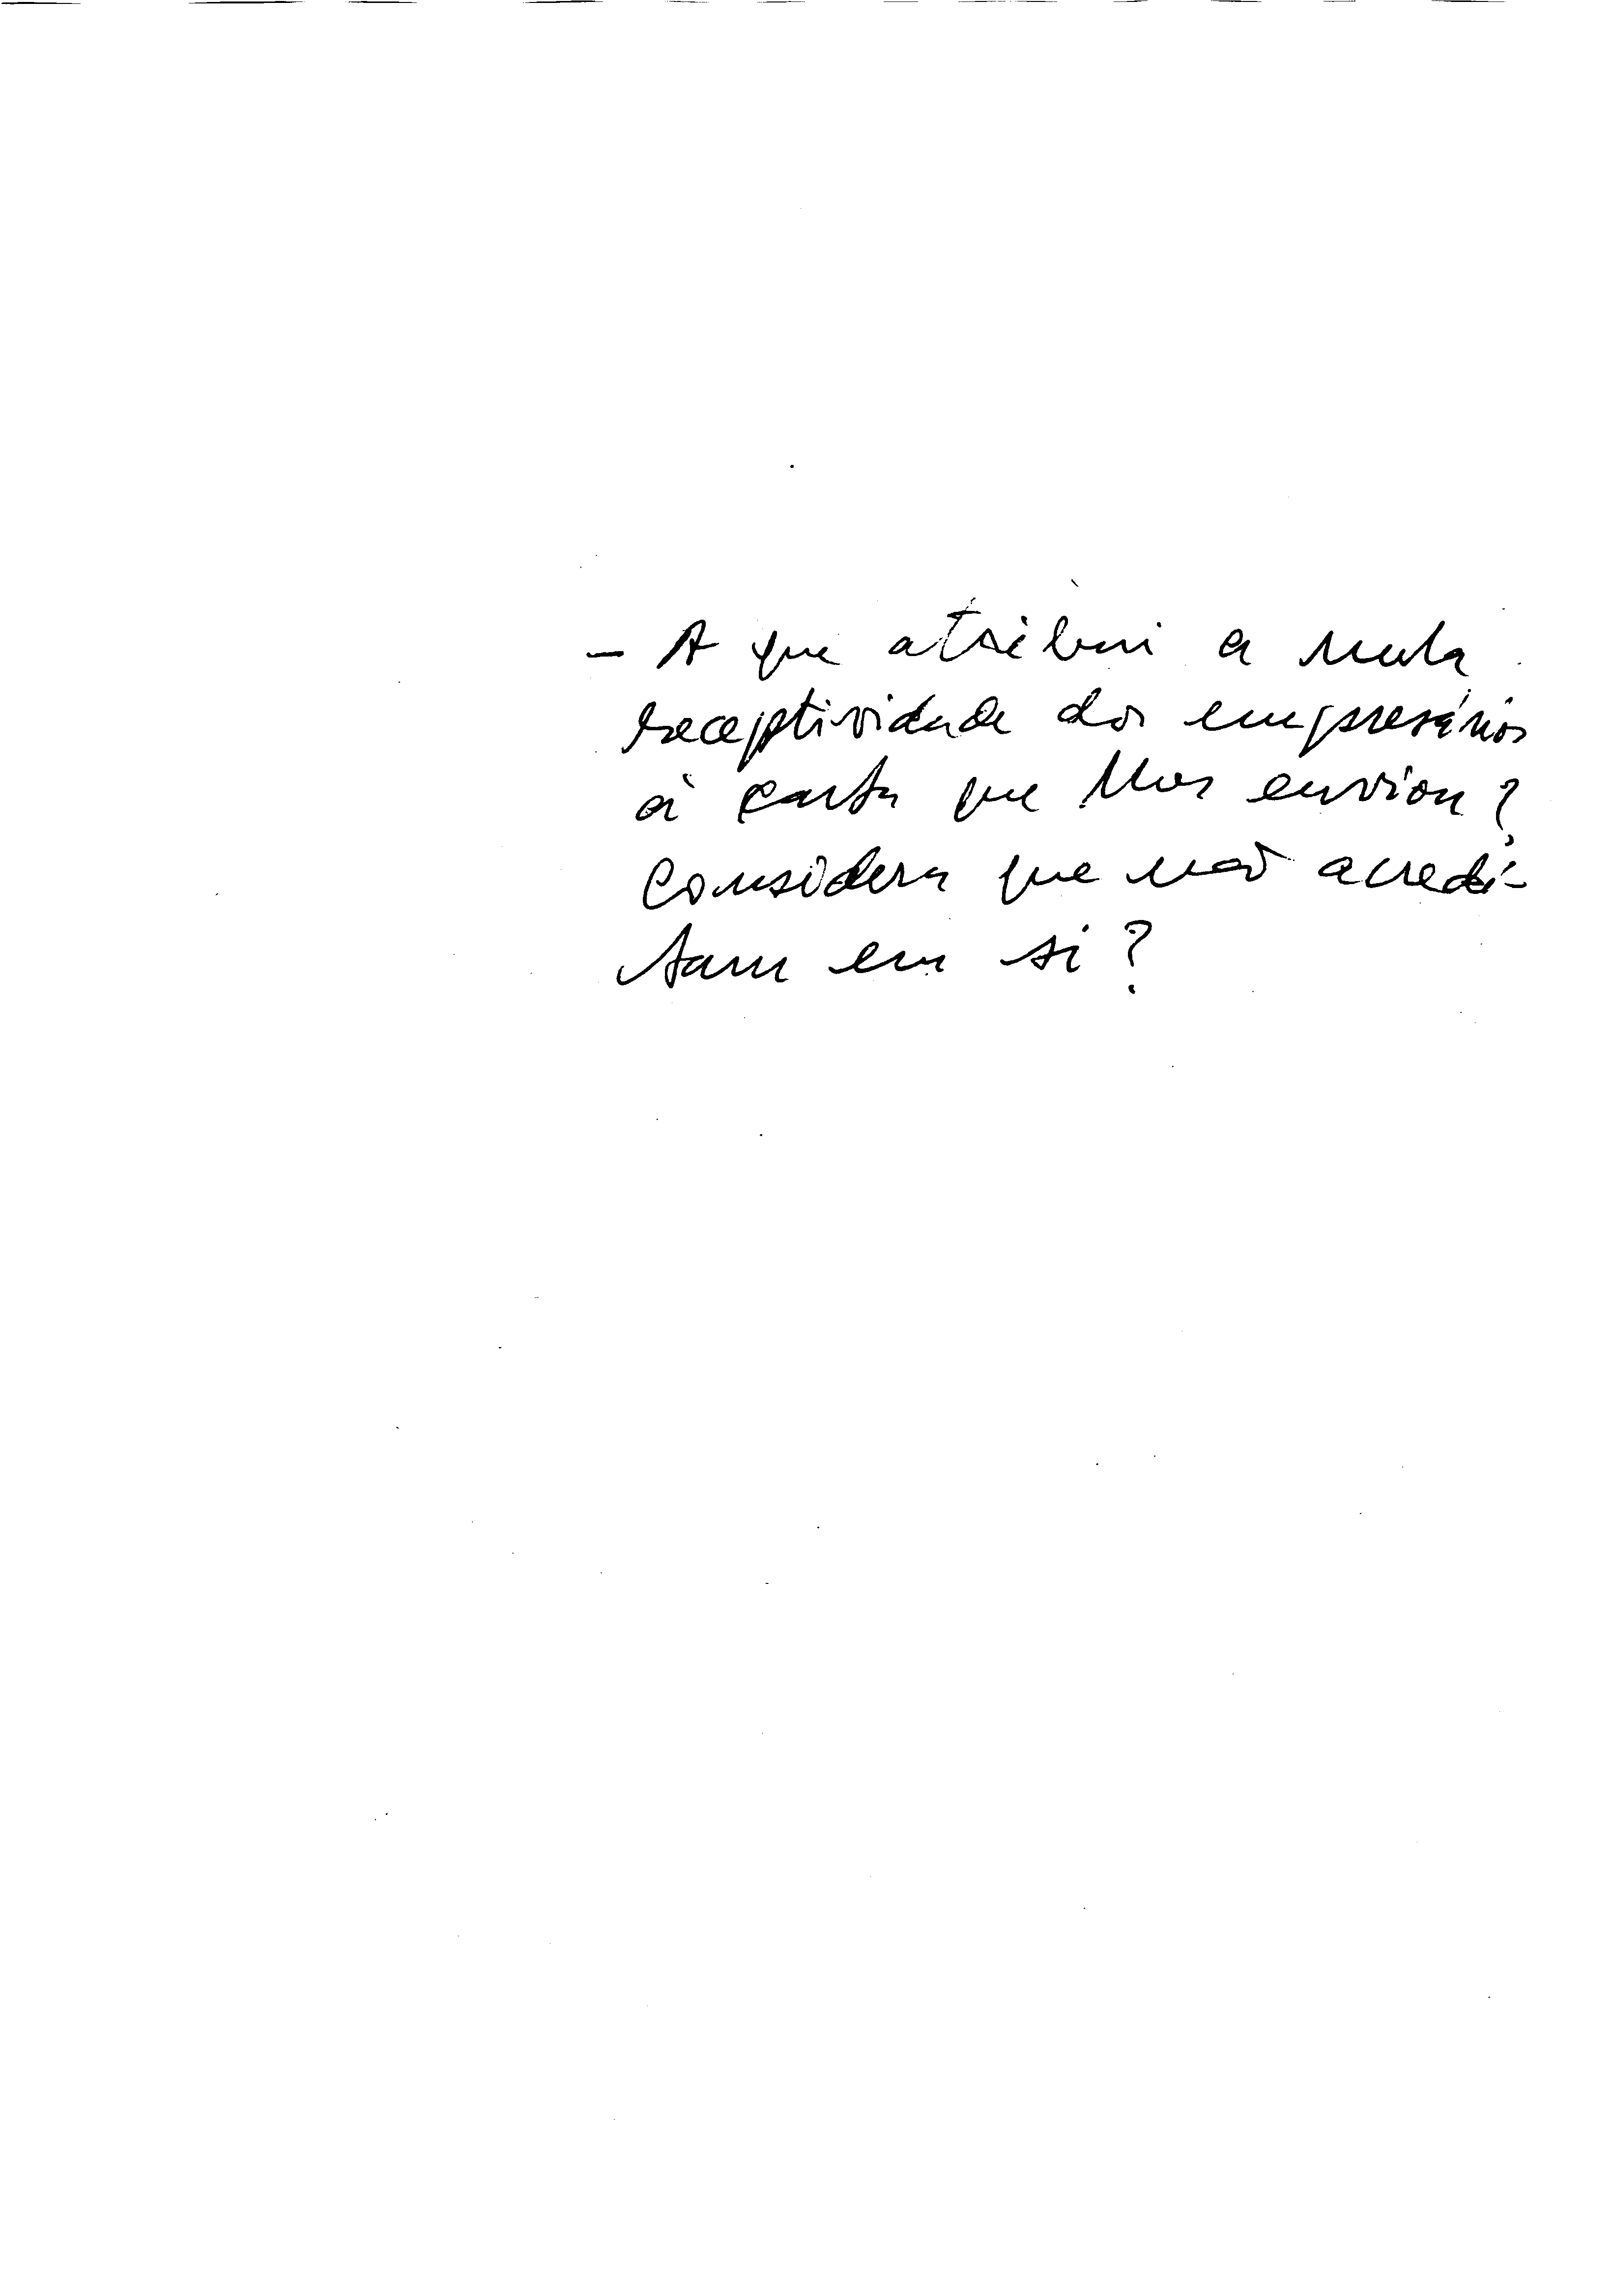 - A que atribui a nula
receptividade dos empresários
à carta que lhes enviou?
Considera que não acredi-
tam em si?